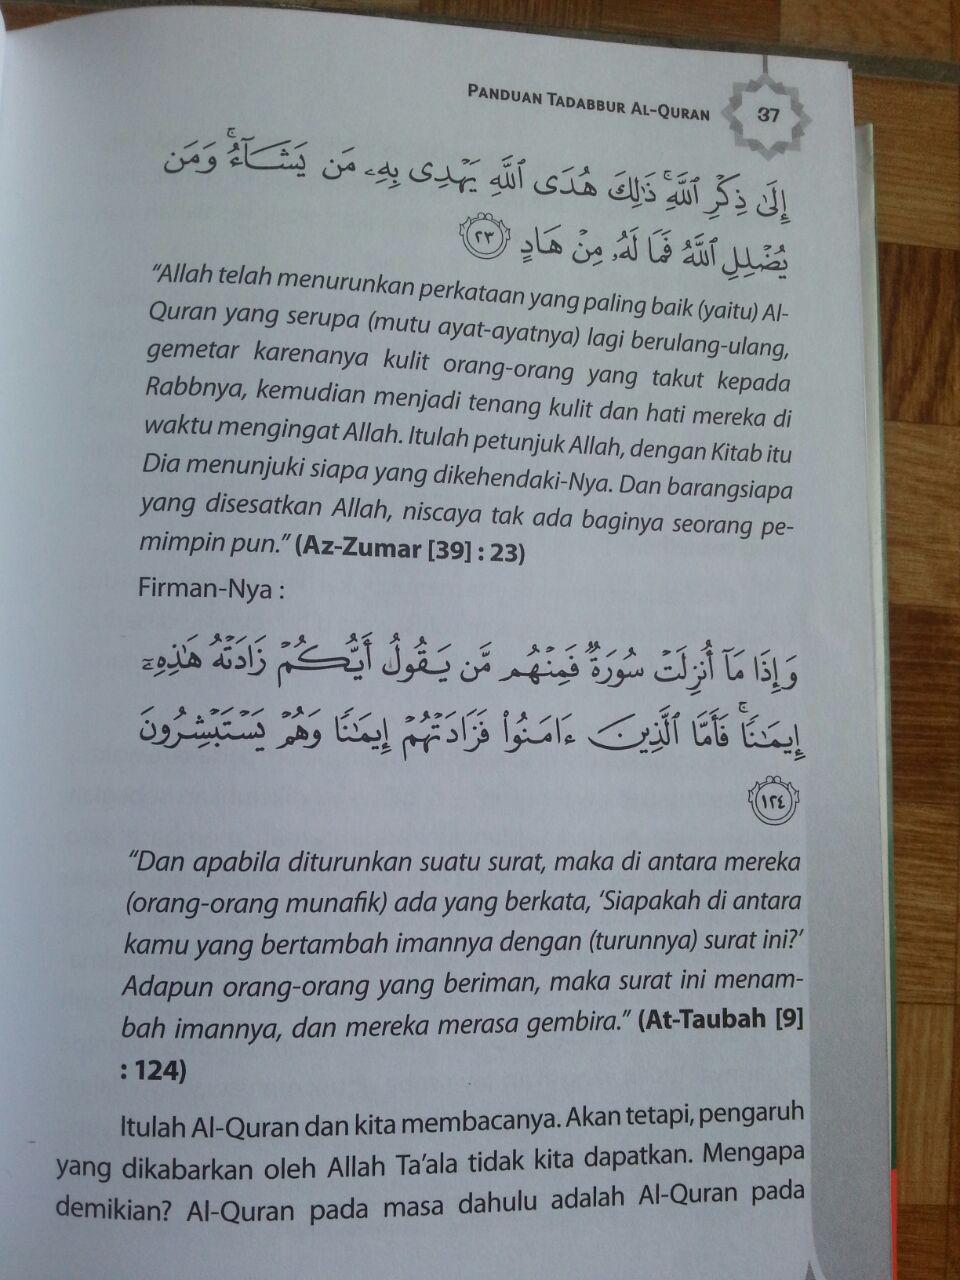 PANDUAN TADABBUR AL-QURAN
37
إِلَىٰ ذِكْرِ ٱللَّهِ ۚ ذَٰلِكَ هُدَى ٱللَّهِ يَهْدِى بِهِۦ مَن يَشَآءُ ۚ وَمَن
يُضْلِلِ ٱللَّهُ فَمَا لَهُۥ مِنْ هَادٍ ٢٣
“Allah telah menurunkan perkataan yang paling baik (yaitu) Al-
Quran yang serupa (mutu ayat-ayatnya) lagi berulang-ulang,
gemetar karenanya kulit orang-orang yang takut kepada
Rabbnya, kemudian menjadi tenang kulit dan hati mereka di
waktu mengingat Allah. Itulah petunjuk Allah, dengan Kitab itu
Dia menunjuki siapa yang dikehendaki-Nya. Dan barangsiapa
yang disesatkan Allah, niscaya tak ada baginya seorang pe-
mimpin pun.” (Az-Zumar [39] : 23)
Firman-Nya :
وَإِذَا مَآ أُنزِلَتْ سُورَةٌ فَمِنْهُم مَّن يَقُولُ أَيُّكُمْ زَادَتْهُ هَٰذِهِۦٓ
إِيمَٰنًا ۚ فَأَمَّا ٱلَّذِينَ ءَامَنُوا۟ فَزَادَتْهُمْ إِيمَٰنًا وَهُمْ يَسْتَبْشِرُونَ
١٢٤
“Dan apabila diturunkan suatu surat, maka di antara mereka
(orang-orang munafik) ada yang berkata, ‘Siapakah di antara
kamu yang bertambah imannya dengan (turunnya) surat ini?’
Adapun orang-orang yang beriman, maka surat ini menam-
bah imannya, dan mereka merasa gembira.” (At-Taubah [9]
: 124)
Itulah Al-Quran dan kita membacanya. Akan tetapi, pengaruh
yang dikabarkan oleh Allah Ta’ala tidak kita dapatkan. Mengapa
demikian? Al-Quran pada masa dahulu adalah Al-Quran pada